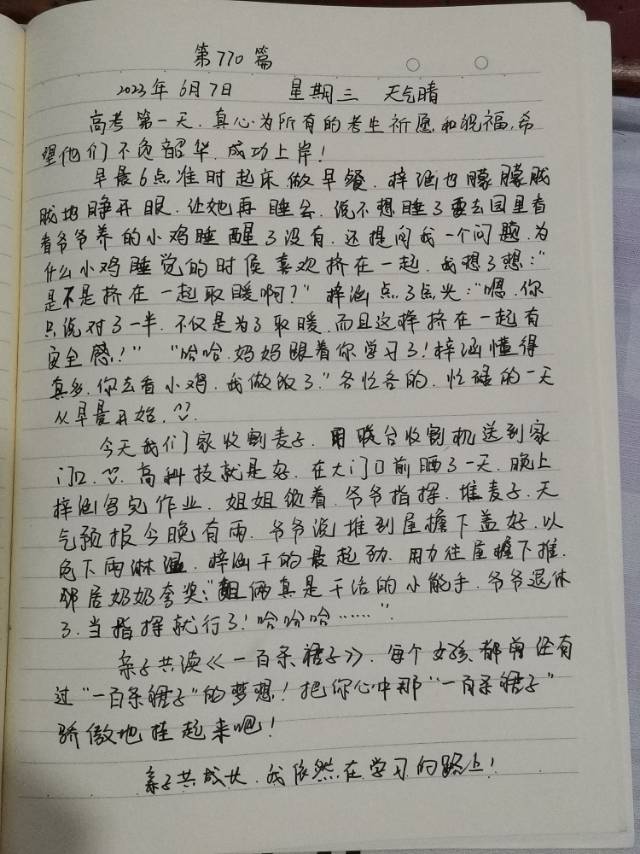 第770篇
2023年6月7日 星期三 天气晴
高考第一天,真心为所有的考生祈愿和祝福,希
望他们不负韶华,成功上岸!
早晨6点准时起床做早餐,梓涵也朦朦胧
胧地睁开眼,让她再睡会,说不想睡了要去园里看
看爷爷养的小鸡睡醒了没有,还提问我一个问题,为
什么小鸡睡觉的时侯喜欢挤在一起,我想了想:“
是不是挤在一起取暖啊?”梓涵点了点头:“嗯,你
只说对了一半,不仅是为了取暖,而且这样挤在一起有
安全感!”“哈哈,妈妈跟着你学习了!梓涵懂得
真多,你去看小鸡,我做饭了。”各忙各的,忙碌的一天
从早晨开始。
今天我们家收割麦子,用收割机送到家
门口,高科技就是好,在大门口前晒了一天,晚上
梓涵写完作业,姐姐领着,爷爷指挥,堆麦子,天
气预报今晚有雨,爷爷说堆到屋檐下盖好,以
免下雨淋湿,梓涵干的最起劲,用力往屋檐下推,
邻居奶奶夸奖:“姐俩真是干活的小能手,爷爷退休
了,当指挥就行了!哈哈哈……”
亲子共读《一百条裙子》,每个女孩都曾经有
过“一百条裙子”的梦想!把你心中那“一百条裙子”
骄傲地挂起来吧!
亲子共成长,我依然在学习的路上!